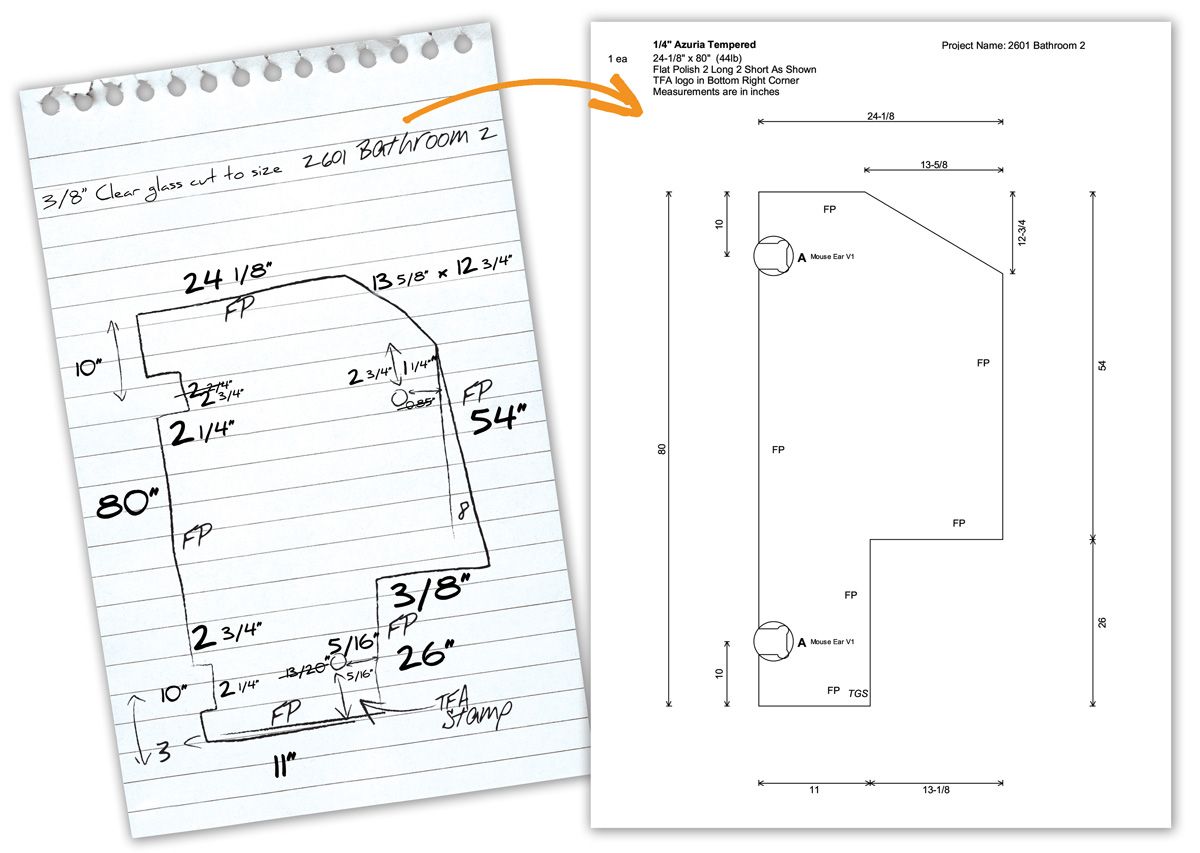 2601 Bathroom 2
3/8" Clear glass cut to size
24 1/8"
13 5/8" x 12 3/4"
FP
10"
2 3/4"
2 3/4"
1 1/4"
0.85"
FP
54"
2 1/4"
80"
8
FP
3/8"
2 3/4"
5/16"
FP
13/20"
26"
5/16"
10"
2 1/4"
FP
TFA
Stamp
3
11"
1/4" Azuria Tempered
Project Name: 2601 Bathroom 2
1 ea
24-1/8" x 80" (44lb)
Flat Polish 2 Long 2 Short As Shown
TFA logo in Bottom Right Corner
Measurements are in inches
24-1/8
13-5/8
FP
10
12-3/4
A Mouse Ear V1
FP
54
FP
80
FP
FP
26
A Mouse Ear V1
10
FP
TGS
11
13-1/8